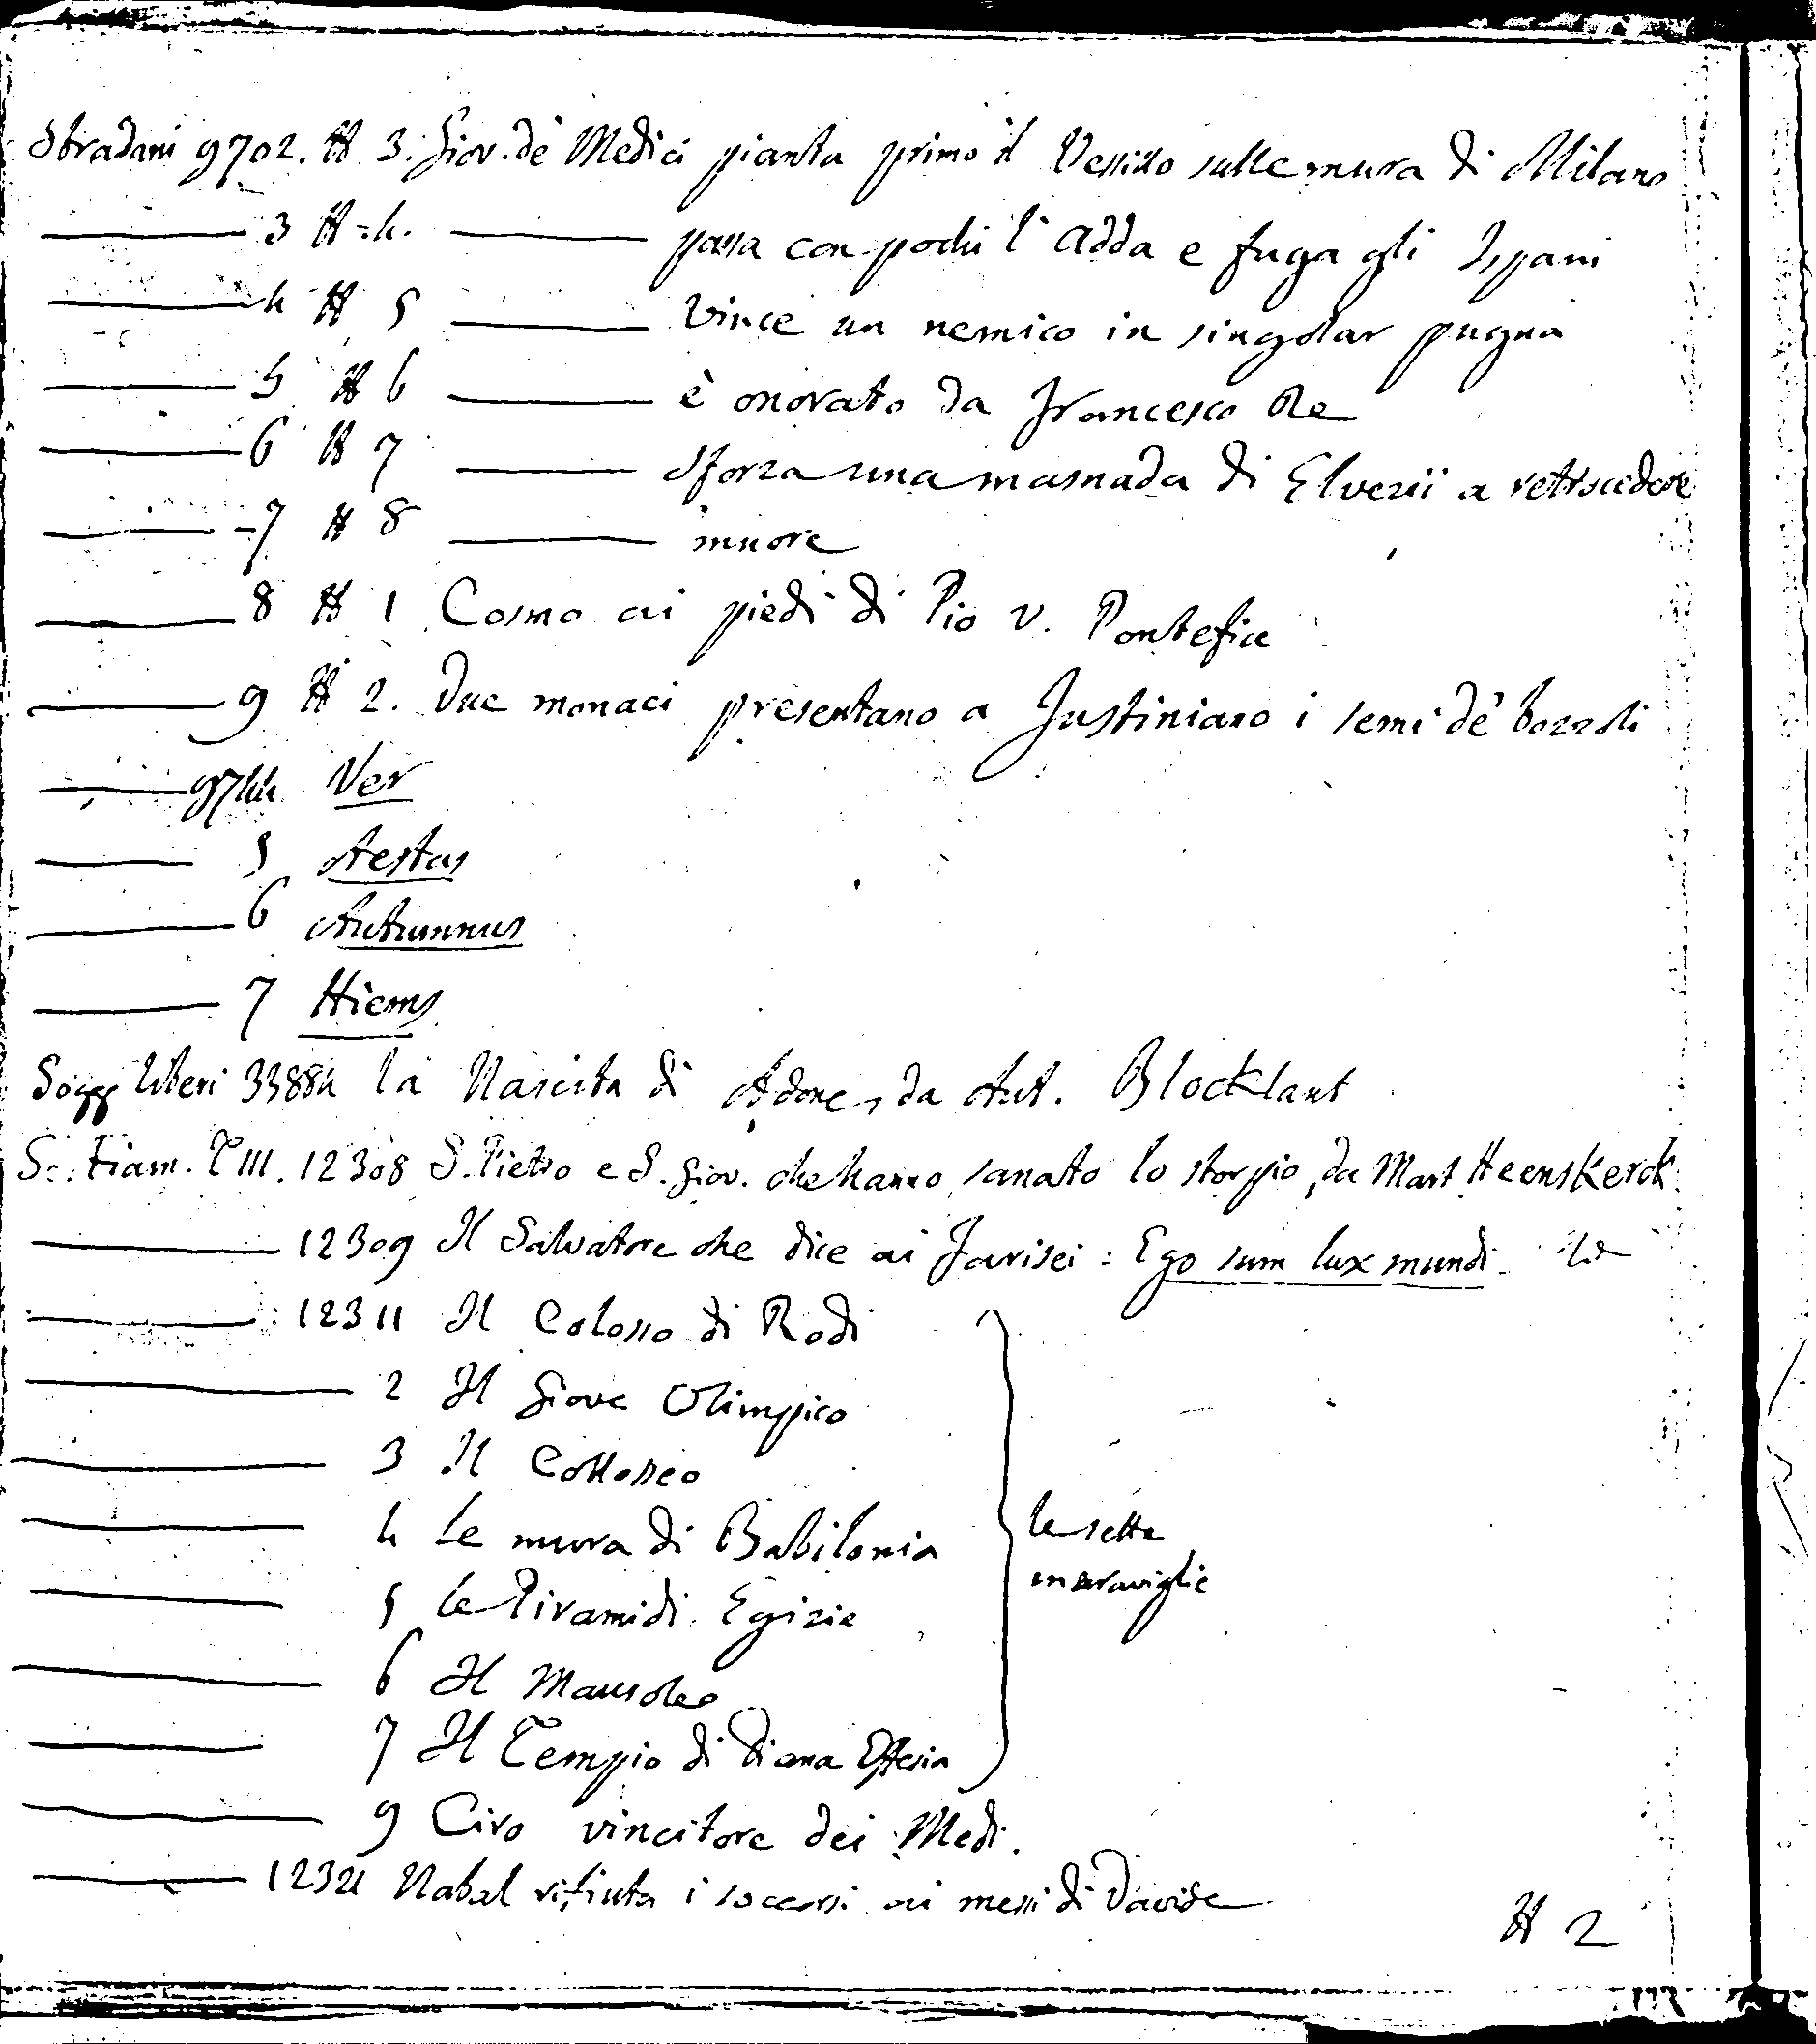 Stradani 9702. # 3. Giov. de' Medici pianta primo il Vessillo sulle mura di Milano
——— 3 # 4. ——— passa con pochi l'Adda e fuga gli Ispani
——— 4 # 5 ——— Vince un nemico in singolar pugna
——— 5 # 6 ——— è onorato da Francesco Re
——— 6 # 7 ——— Sforza una masnada di Elvezii a retrocedere
——— 7 # 8 ——— muore
——— 8 # 1 Cosmo ai piedi di Pio V. Pontefice
——— 9 # 2. Due monaci presentano a Justiniano i semi de' bozzoli
——— 9744 Ver
——— 5 Aestas
——— 6 Autumnus
——— 7 Hiems
Sogg liberi 33884 la Nascita di Adone, da Ant. Blocklant
Sc: Fiam. T III. 12308 S. Pietro e S. Giov. che hanno sanato lo storpio, da Mart Heenskerck
——— 12309 Il Salvatore che dice ai Farisei: Ego sum lux mundi
——— 12311 Il Colosso di Rodi
——— 2 Il Giove Olimpico
——— 3 Il Collosseo
——— 4 Le mura di Babilonia
le sette
——— 5 Le Piramidi Egizie
meraviglie
——— 6 Il Mausoleo
——— 7 Il Tempio di Diana Effesia
——— 9 Ciro vincitore dei Medi.
——— 12321 Nabal rifiuta i soccorsi ai messi di Davide
# 2